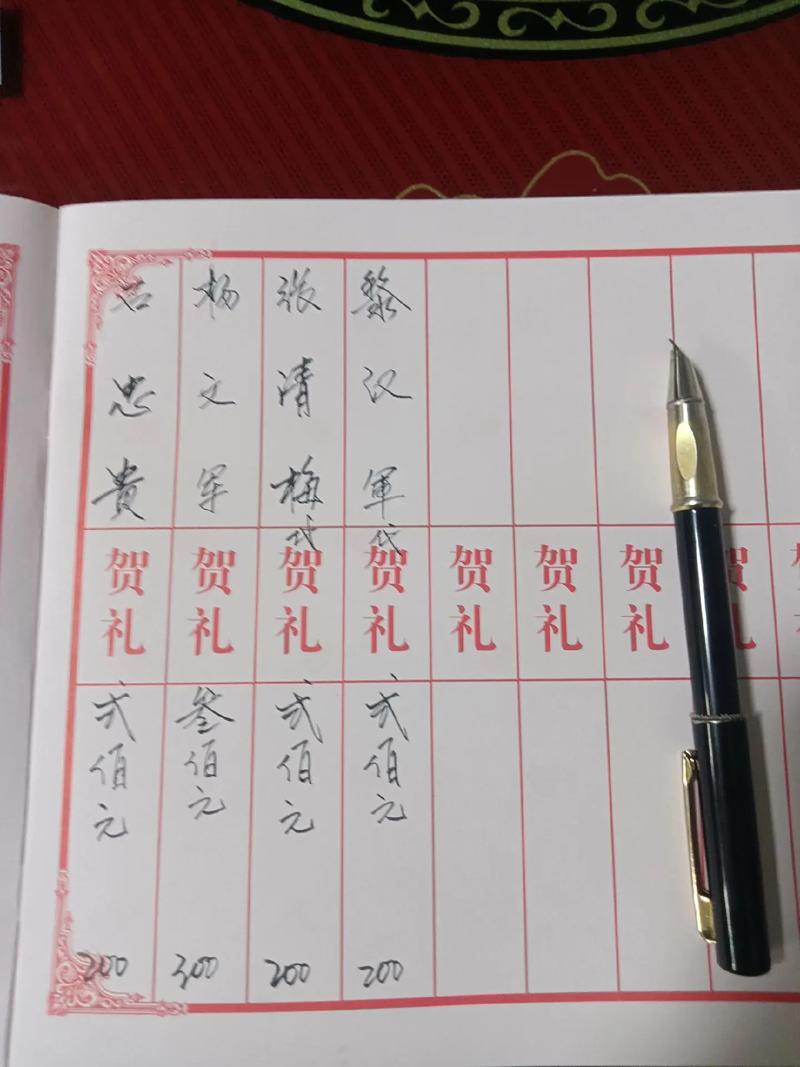 忠貴
贺礼
弍佰元
200
杨文军
贺礼
叁佰元
300
张清梅代
贺礼
弍佰元
200
黎汉軍代
贺礼
弍佰元
200
贺礼
贺礼
贺礼
贺礼